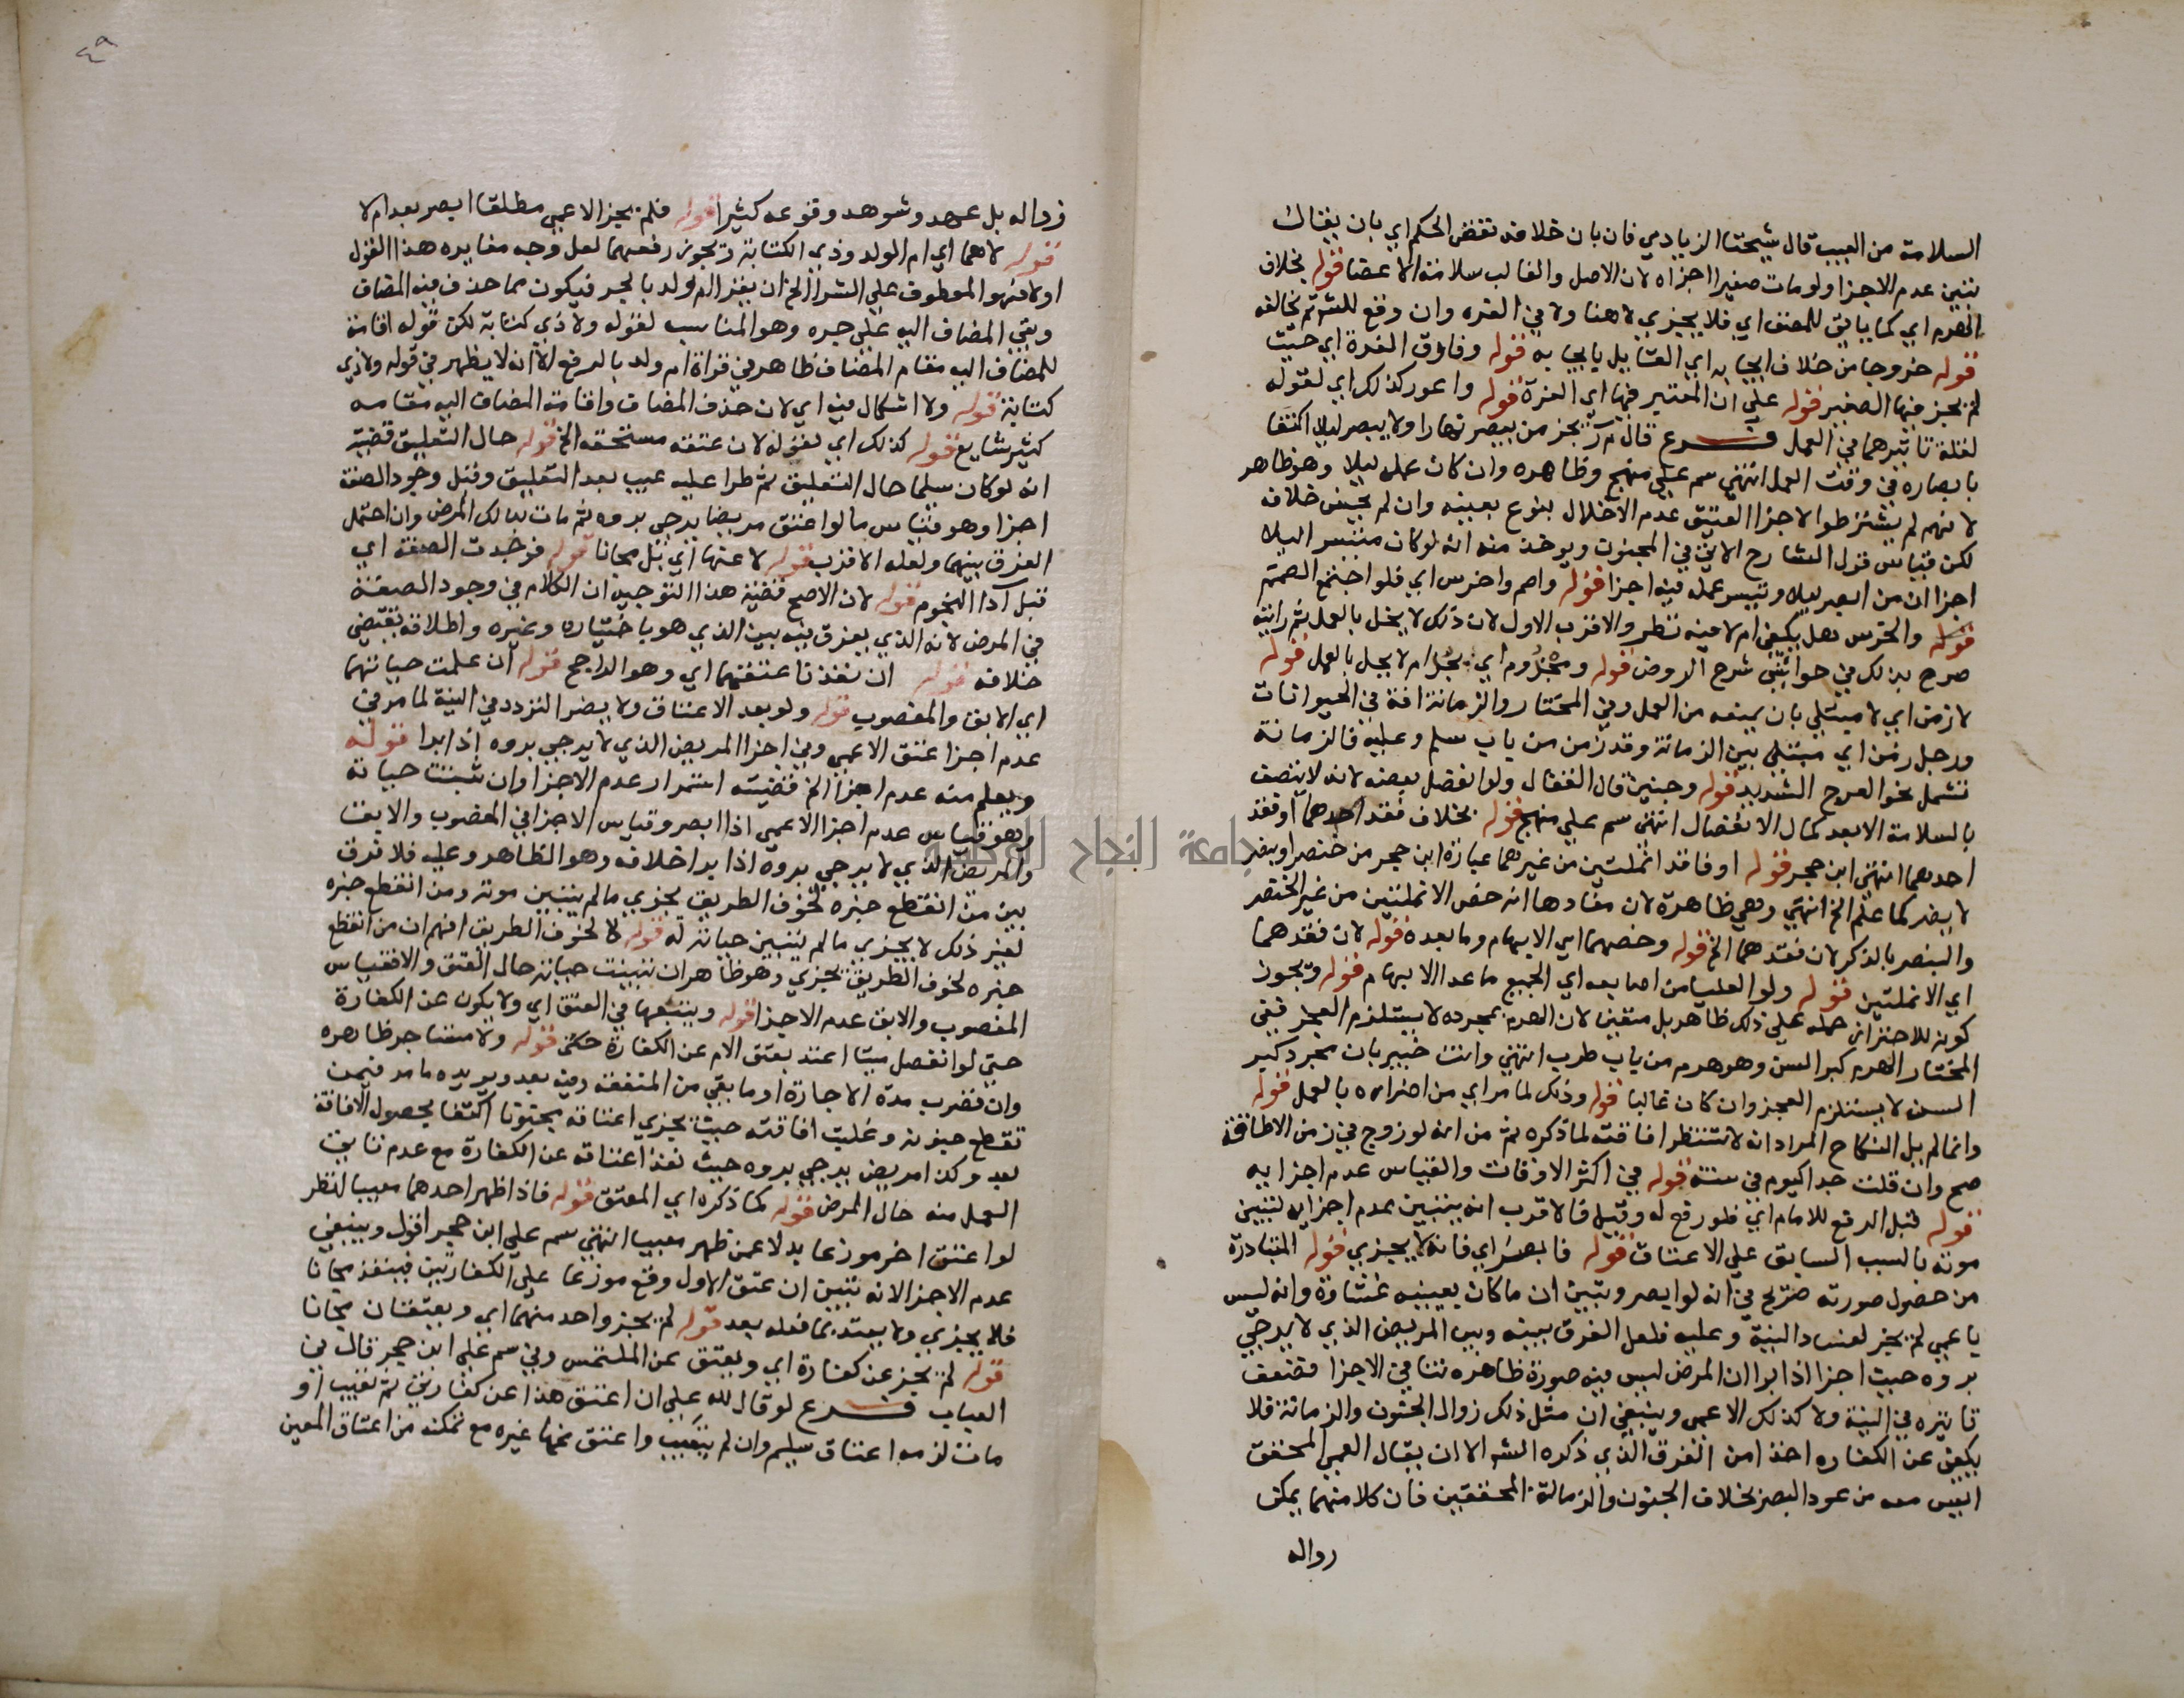 السلامة من العيب قال شيختا الزيادي فان بان خلافه نقض الحكم اي بان يقال
تبين عدم الاجزا ولو مات صغيرا اجزاه لان الاصل والغالب سلامة الاعضا قوله بخلاف
الهرم اي كما ياتي للمصنف اي فلا يجزي لا هنا ولا في الغره وان وقع للشم ثم مخالفه
قوله خروجا من خلاف ايجابه اي القايل بايجابه قوله وفارق الغرة اي حيث
لم يجز فيها الصغير قوله علي ان المعتبر فيها اي الغرة قوله واعور كذلك اي لقوله
لقلة تاثيرهما في العمل فرع قال م ر يجز من يبصر نهارا ولا يبصر ليلا اكتفا
بابصاره في وقت العمل انتهي سم علي منهج وظاهره وان كان عمله ليلا وهو ظاهر
لانهم لم يشترطوا لاجزا العتيق عدم الاخلال بنوع بعينه وان لم يحسن خلافه
لكن قياس قول الشارح الاتي في المجنون ويوخذ منه انه لو كان متيسر ليلا
اجزا ان من ابصر ليلا وتيسر عمله فيه اجزا قوله واصم واخرس اي فلو اجتمع الصمم
قوله والخرس هل يكفي ام لا فيه نظر والاقرب الاول لان ذلك لا يخل بالعمل ثم رايته
صرح بذلك في حواشي شرح الروض قوله ومجذوم اي يخل ام لا يخل بالعمل قوله
لا زمن اي لا مبتلي بان يمنعه من العمل وفي المختار والزمانة افة في الحيوانات
ورجل زمن اي مبتلي بين الزمانة وقد زمن من باب سلم وعليه فالزمانة
تشمل نحو العرج الشديد قوله وجنين قال القفال ولو انفصل بعضه لانه لا يتصف
بالسلامة الا بعد كمال الانفصال انتهي سم علي منهج قوله بخلاف فقد احدهما او فقد
احدهما انتهي ابن حجر قوله او فاقد انملتين من غيرهما عبارة ابن حجر من خنصر او بنصر
لا يضر كما علم الخ انتهي وهي ظاهرة لان مفادها انه خص الانملتين من غير الخنصر
والبنصر بالذكر لان فقدهما الخ قوله وخصهما اي الابهام وما بعده قوله لان فقدهما
اي الانملتين قوله ولو العليا من اصابعه اي الجميع ما عدا الابهام قوله ويجوز
كونه للاحتراز حمله علي ذلك ظاهر بل متعين لان الهرم بمجرده لا يستلزم العجز ففي
المختار الهرم كبر السن وهو هرم من باب طرب انتهي وانت خبير بان مجرد كبر
السن لا يستلزم العجز وان كان غالبا قوله وذلك لما مر اي من اضراره بالعمل قوله
وانما لم يل النكاح المراد انه لا تنتظر افاقته لما ذكره ثم من انه لو زوج في زمن الافاقة
صح وان قلت جدا كيوم في سنة قوله في اكثر الاوقات والقياس عدم اجزايه
قوله قبل الرفع للامام اي فلو رفع له وقتل فالاقرب انه يتبين عدم اجزايه لتبين
موته بالسبب السابق علي الاعتاق قوله فابصر اي فانه لا يجزي قوله المتبادرة
من حصول صورته صريح في انه لو ابصر وتبين ان ما كان بعينيه غشاوة وانه ليس
باعمي لم يجز لفساد النية وعليه فلعل الفرق بينه وبين المريض الذي لا يرجي
بروه حيث اجزا اذا برا ان المرض ليس فيه صورة ظاهره تنافي الاجزا فضعف
تاثيره في النية ولا كذلك الاعمي وينبغي ان مثل ذلك زوال الجنون والزمانة فلا
يكفي عن الكفاره اخذا من الفرق الذي ذكره الشم الا ان يقال العمي المحقق
ايس معه من عود البصر بخلاف الجنون والزمانة المحققين فان كلا منهما يمكن
زواله
٤٩
زواله بل عهد وشوهد وقوعه كثيرا قوله فلم يجز الاعمي مطلقا ابصر بعد ام لا
قوله لا هما اي ام الولد وذي الكتابة ويجوز رفعهما لعل وجه مغايره هذا القول
اولا فهو المعطوف علي الشرا الخ ان يقرا ام ولد بالجر فيكون مما حذف فيه المضاف
وبقي المضاف اليه علي جره وهو المناسب لقوله ولا ذي كتابة لكن قوله اقامة
للمضاف اليه مقام المضاف ظاهر في قراة ام ولد بالرفع الا انه لا يظهر في قوله ولا ذي
كتابة قوله ولا اشكال فيه اي لان حذف المضاف واقامة المضاف اليه مقامه
كثير شايع قوله كذلك اي لقوله لان عتقه مستحقه الخ قوله حال التعليق قضيته
انه لو كان سليما حال التعليق ثم طرا عليه عيب بعد التعليق وقبل وجود الصفة
اجزا وهو قياس ما لو اعتق مريضا يرجي بروه ثم مات بذالك المرض وان احتمل
الفرق بينهما ولعله الاقرب قوله لا عنها اي بل مجانا قوله فوجدت الصفة اي
قبل ادا النجوم قوله لان الاصح قضية هذا التوجيه ان الكلام في وجود الصفة
في المرض لانه الذي يفرق فيه بين الذي هو باختياره وغيره واطلاقه يقتضي
خلافه قوله ان نفذنا عتقهما اي وهو الراجح قوله ان علمت حياتهما
اي الابق والمغصوب قوله ولو بعد الاعتاق ولا يضر التردد في النية لما مر في
عدم اجزا عتق الاعمي وفي اجزا المريض الذي لا يرجي بروه اذا برا قوله
ويعلم منه عدم اجزا الخ قضيته استمرار عدم الاجزا وان تبينت حياته
وهو قياس عدم اجزا الاعمي اذا ابصر وقياس الاجزا في المغصوب والابق
والمريض الذي لا يرجي بروه اذا برا خلافه وهو الظاهر وعليه فلا فرق
بين من انقطع خبره لخوف الطريق يجزي ما لم يتبين موته ومن انقطع خبره
لغير ذلك لا يجزي ما لم يتبين حياته له قوله لا لخوف الطريق افهم ان من انقطع
خبره لخوف الطريق يجزي وهو ظاهر ان تبينت حياته حال العتق والا فقياس
المغصوب والابق عدم الاجزا قوله ويتبعها في العتق اي ولا يكون عن الكفارة
حتي لو انفصل ميتا اعتد بعتق الام عن الكفارة حكمي قوله ولا مستاجر ظاهره
وان قضرب مدة الاجارة او ما بقي من المنفعة وفيه بعد ويويده ما مر فيمن
تقطع جنونه وغلبت افاقته حيث يجزي اعتاقه مجنونا اكتفا بحصول الافاقة
بعد وكذا مريض يرجي بروه حيث نفذ اعتاقه عن الكفارة مع عدم تاتي
العمل منه حال المرض قوله كما ذكره اي المعتق قوله فاذا ظهر احدهما معيبا لنظر
لو اعتق اخر موزعا بدلا عمن ظهر معيبا انتهي سم علي ابن حجر اقول وينبغي
عدم الاجزا لانه تبين ان عتق الاول وقع موزعا علي الكفارتين فينفذ مجانا
فلا يجزي ولا يعتد بما فعله بعد قوله لم يجز واحد منهما اي ويعتقان مجانا
قوله لم يجز عن كفارة اي ويعتق عن الملتمس وفي سم علي ابن حجر قال في
العباب فرع لو قال لله علي ان اعتق هذا عن كفارتي ثم تعيب او
مات لزمه اعتاق سليم وان لم يتعيب واعتق عنها غيره مع تمكنه من اعتاق المعين
جامعة النجاح الوطنية